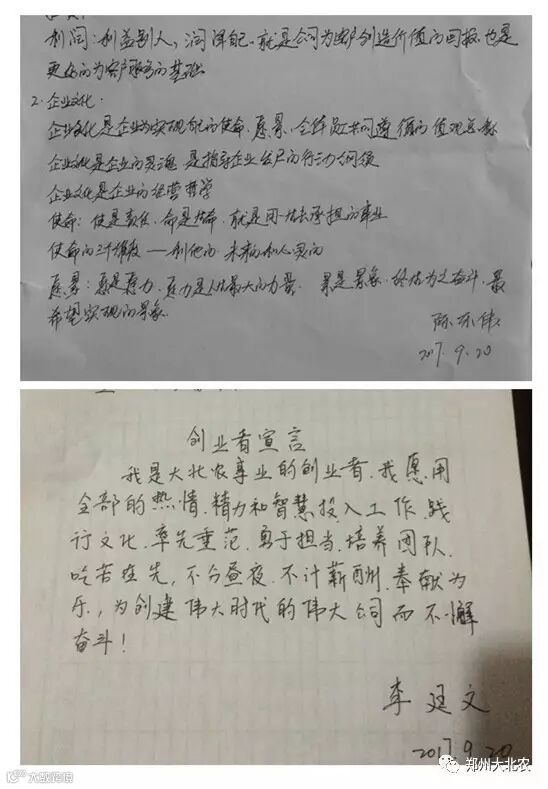 利润：利益别人，润泽自己.就是公司为客户创造价值的回报.也是
更好的为客户服务的基础.
2.企业文化.
企业文化是企业为实现自己的使命.愿景.全体员工共同遵循的价值观
企业文化是企业的灵魂 是指导企业发展的行动纲领
企业文化是企业的经营哲学
使命：使是责任.命是生命.就是用一生去承担的事业
使命的三个维度——利他的.未来的和心灵的
愿景：愿是愿力.愿力是人生最大的力量. 景是景象.终生为之奋斗.最
希望实现的景象.
陈环伟
2017.9.20
创业者宣言
我是大北农事业的创业者.我愿用
全部的热情.精力和智慧投入工作.践
行文化.率先垂范.勇于担当.培养团队.
吃苦在先,不分昼夜.不计薪酬.奉献为
乐,为创建伟大时代的伟大公司而不懈
奋斗!
李廷文
2017.9.20
郑州大北农
大数跨境